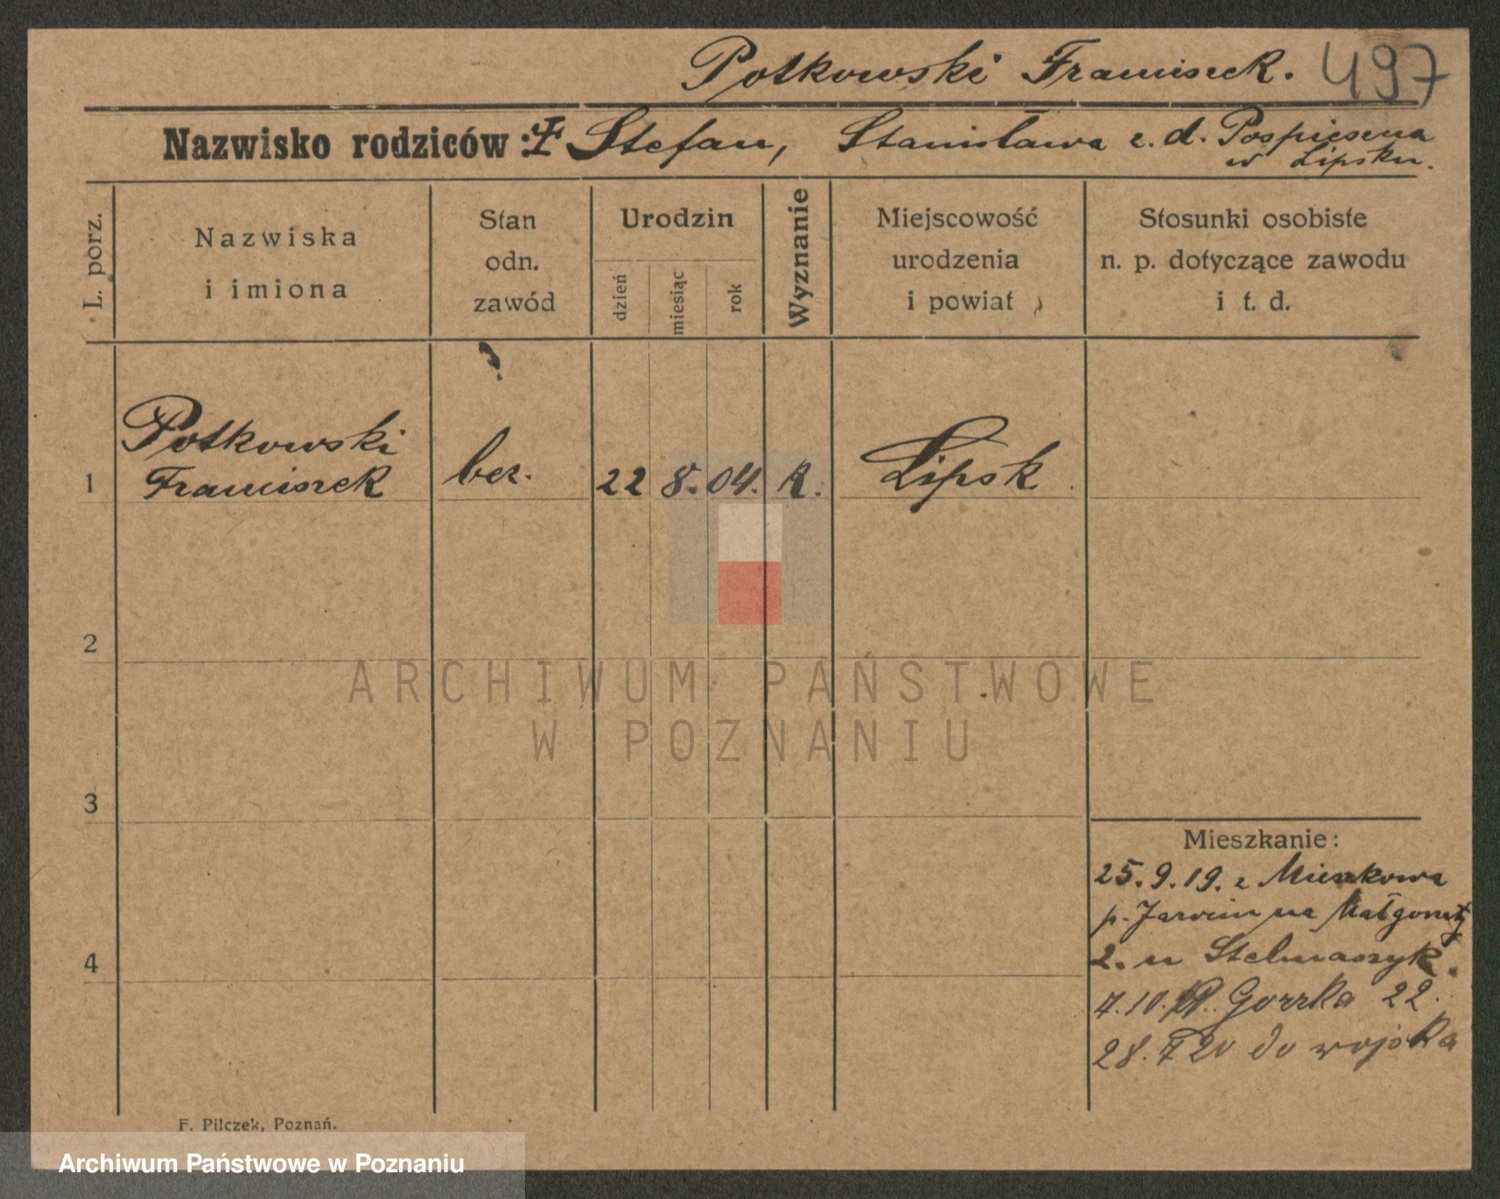 Potkowski Franciszek. 497
Nazwisko rodziców: Stefan, Stanisława z. d. Pospieszna
w Lipsku.
L. porz.
Nazwiska
i imiona
Stan
odn.
zawód
Urodzin
dzień
miesiąc
rok
Wyznanie
Miejscowość
urodzenia
i powiat
Stosunki osobiste
n. p. dotyczące zawodu
i t. d.
Potkowski
1 Franciszek bez. 22 8. 04. K. Lipsk
2
ARCHIWUM PAŃSTWOWE
W POZNANIU
3
Mieszkanie:
25.9.19. z Mieszkowa
p. Jarocin na Małgorzaty
2. u Stelmaszyk.
4
7.10. Górka 22.
28. 7 20 do wojska
F. Pilczek, Poznań.
Archiwum Państwowe w Poznaniu